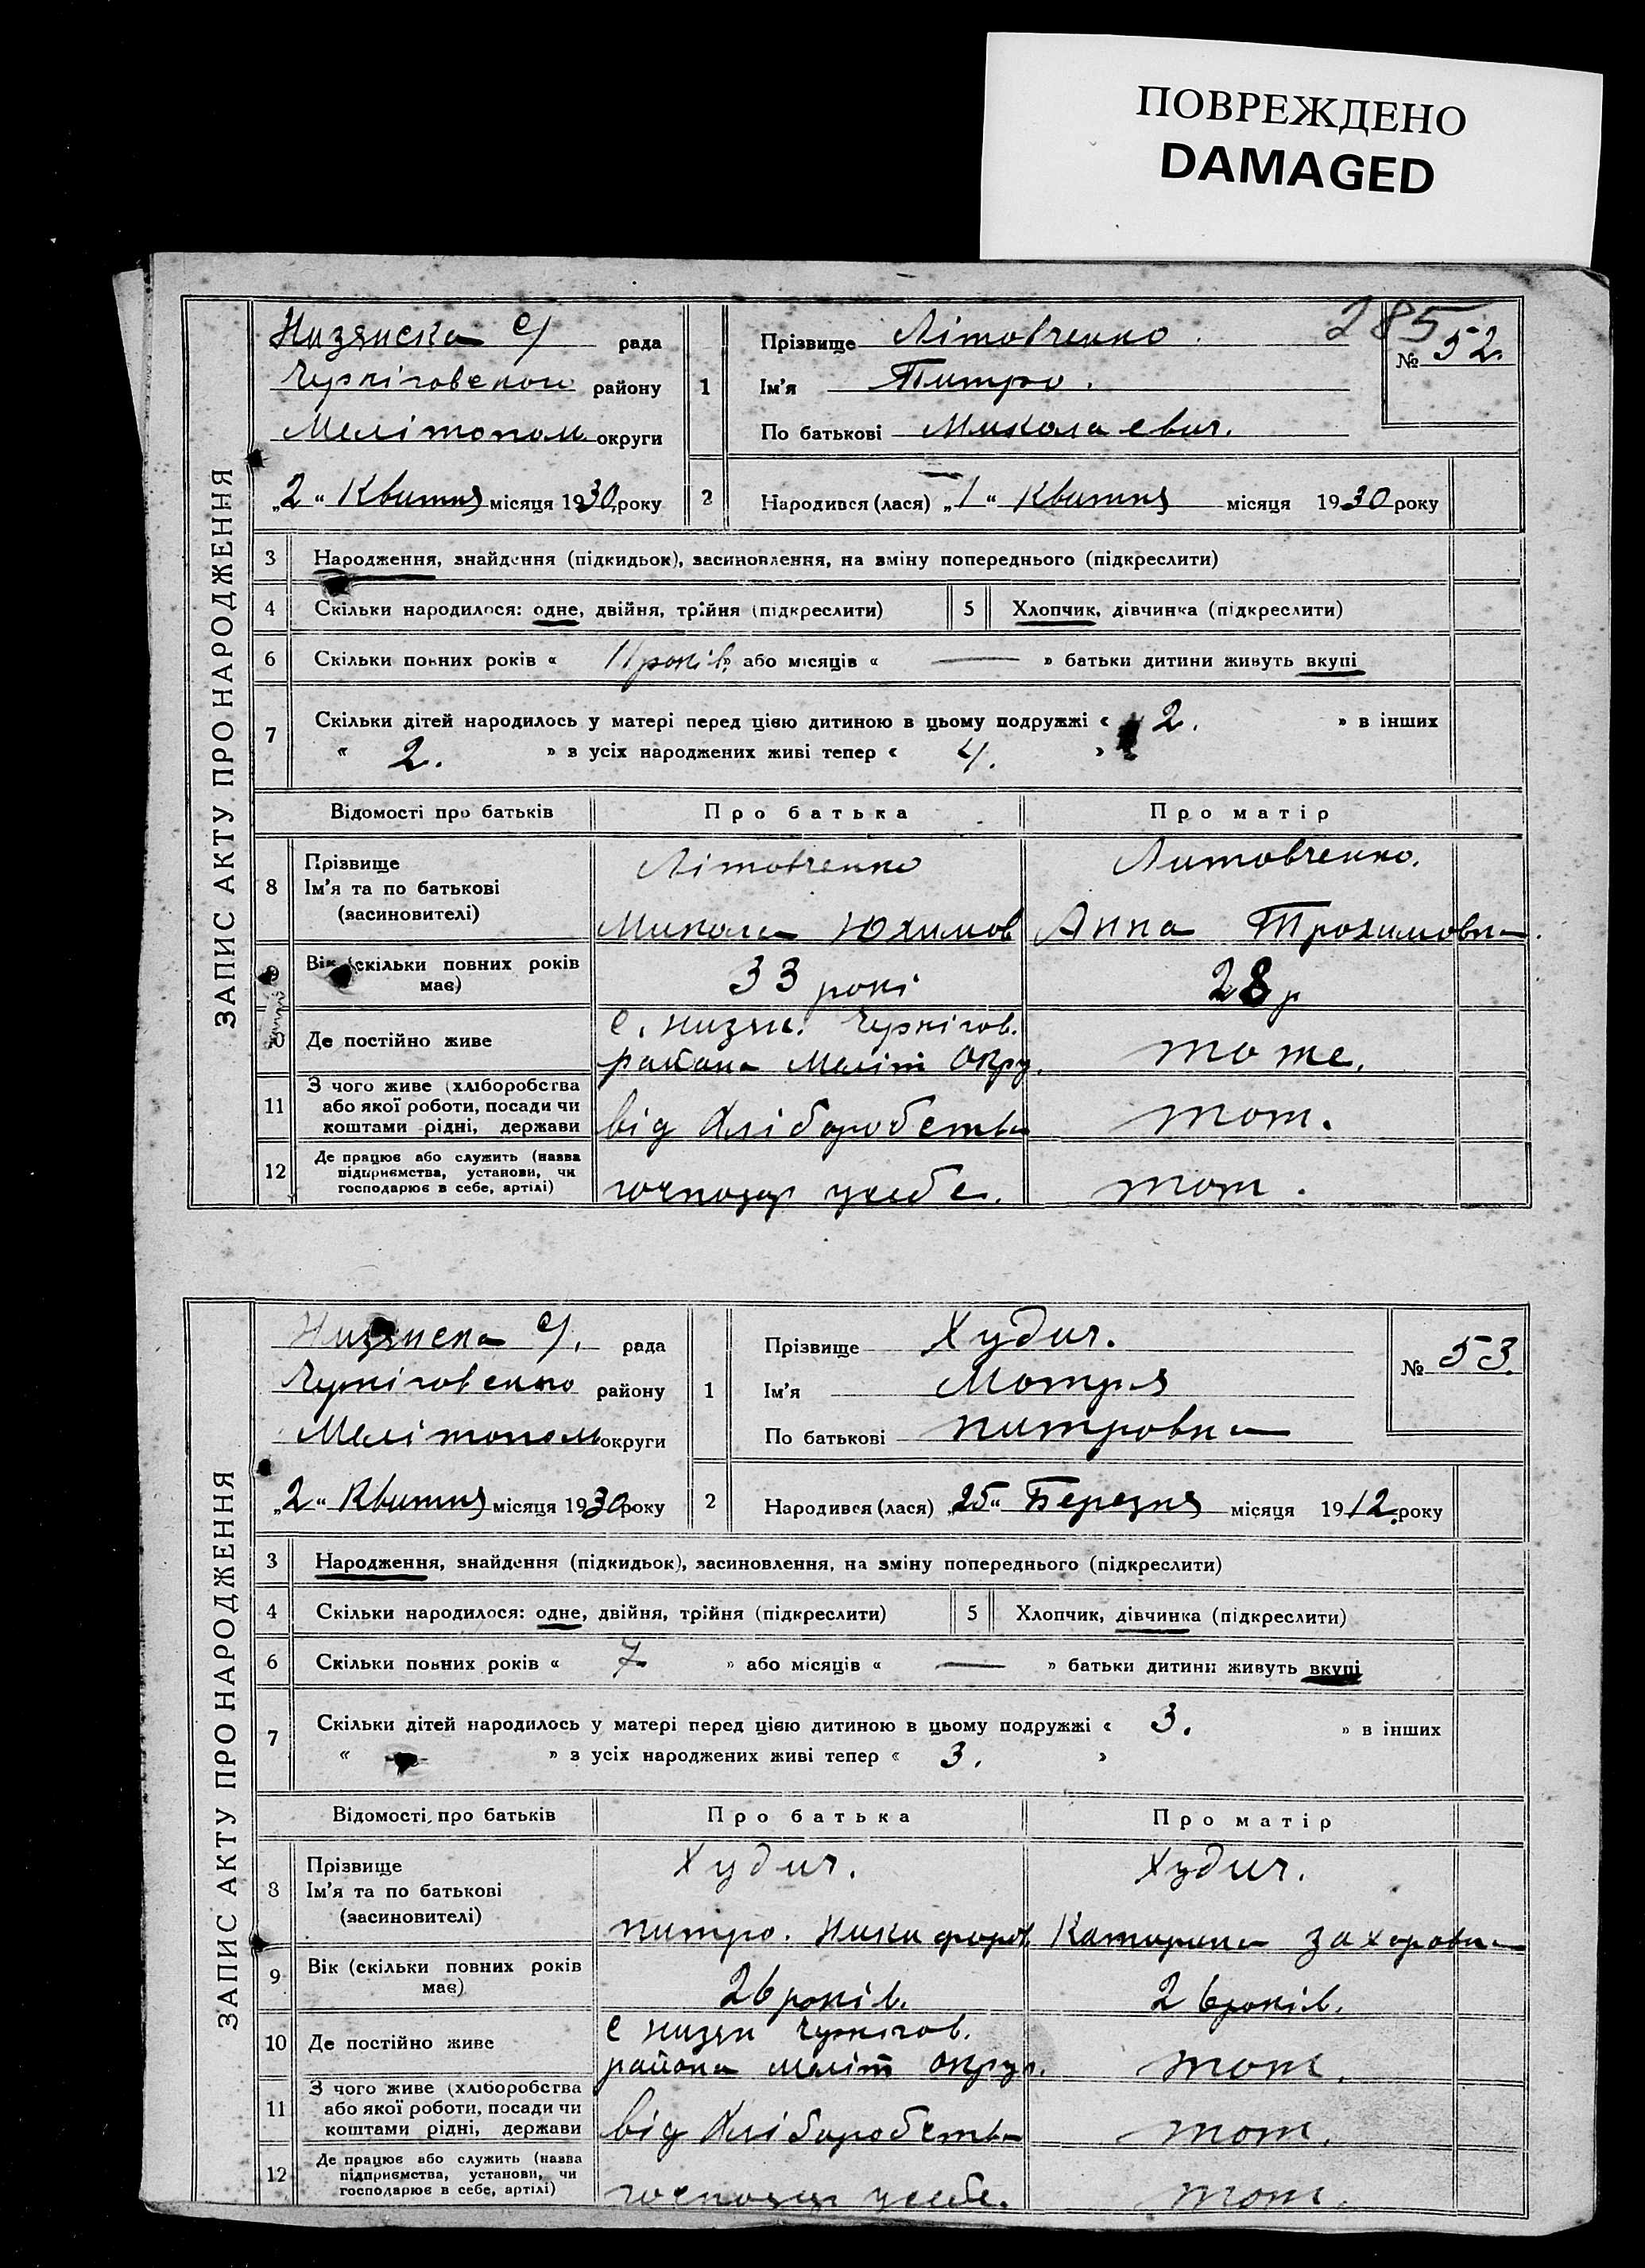 ПОВРЕЖДЕНО
DAMAGED
285
ЗАПИС АКТУ ПРО НАРОДЖЕННЯ
Низянска с/ рада
району
Мелітопол округи
„2“ Квитня місяця 1930 року
1
Прізвище Літовченко.
Ім'я
По батькові Миколаевич.
№ 52.
2
Народився (лася) „1“ Квитня місяця 1930 року
3 Народження, знайдення (підкидьок), засиновлення, на зміну попереднього (підкреслити)
4 Скільки народилося: одне, двійня, трійня (підкреслити) 5 Хлопчик, дівчинка (підкреслити)
6 Скільки повних років « 11 років » або місяців « — » батьки дитини живуть вкупі
7 Скільки дітей народилось у матері перед цією дитиною в цьому подружжі « 2. » в інших
« 2. » з усіх народжених живі тепер « 4. »
Відомості про батьків Про батька Про матір
8 Прізвище
Ім'я та по батькові
(засиновителі)
Літовченко
Микола Юхимов
Литовченко.
Анна Трохимовна.
9 Вік (скільки повних років має) 33 рокі 28 р
10 Де постійно живе
с. низян. Чернігов.
района Меліт Окру.
тоже.
11 З чого живе (хліборобства
або якої роботи, посади чи
коштами рідні, держави
від Хліборобства
тож.
12 Де працює або служить (назва
підприємства, установи, чи
господарює в себе, артілі)
господар усебе.
тож.
ЗАПИС АКТУ ПРО НАРОДЖЕННЯ
Низянска с/. рада
району
Мелітопол округи
„2“ Квитня місяця 1930 року
1
Прізвище Худич.
Ім'я Мотря
По батькові питровна
№ 53.
2
Народився (лася) „25“ Березня місяця 1912 року
3 Народження, знайдення (підкидьок), засиновлення, на зміну попереднього (підкреслити)
4 Скільки народилося: одне, двійня, трійня (підкреслити) 5 Хлопчик, дівчинка (підкреслити)
6 Скільки повних років « 7 » або місяців « — » батьки дитини живуть вкупі
7 Скільки дітей народилось у матері перед цією дитиною в цьому подружжі « 3. » в інших
« — » з усіх народжених живі тепер « 3. »
Відомості про батьків Про батька Про матір
8 Прізвище
Ім'я та по батькові
(засиновителі)
Худич.
питро. Никифоров
Худич.
Катирина захаровна
9 Вік (скільки повних років має) 26 років. 26 років.
10 Де постійно живе
с низян Чернігов.
района меліт округ.
тож.
11 З чого живе (хліборобства
або якої роботи, посади чи
коштами рідні, держави
від Хліборобства
тож.
12 Де працює або служить (назва
підприємства, установи, чи
господарює в себе, артілі)
господар усебе.
тож.